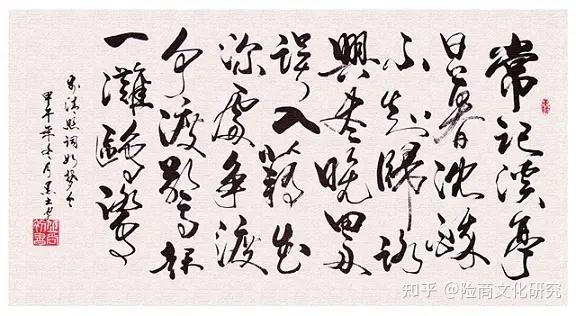 常记溪亭
日暮沈醉
不知歸路
興尽晚回舟
误入藕花
深處争渡
争渡驚起
一灘鷗鷺
李清照词如梦令
甲午年冬月
知乎 @险商文化研究